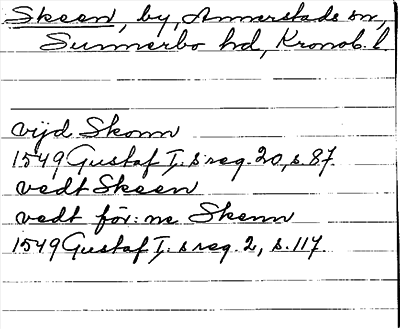 Skeen, by, Annerstads sn,
Sunnerbo hd, Kronob. l.
vijd Skonn
1549 Gustaf I.s reg. 20, s. 87.
vedt Skeen
vedt för:ne Skenn
1549 Gustaf I.s reg. 2, s. 117.